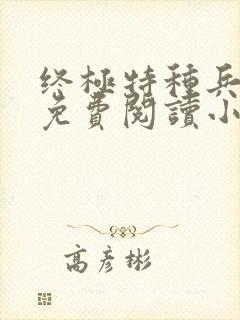 终極特種兵
免費閱讀小
高彥彬